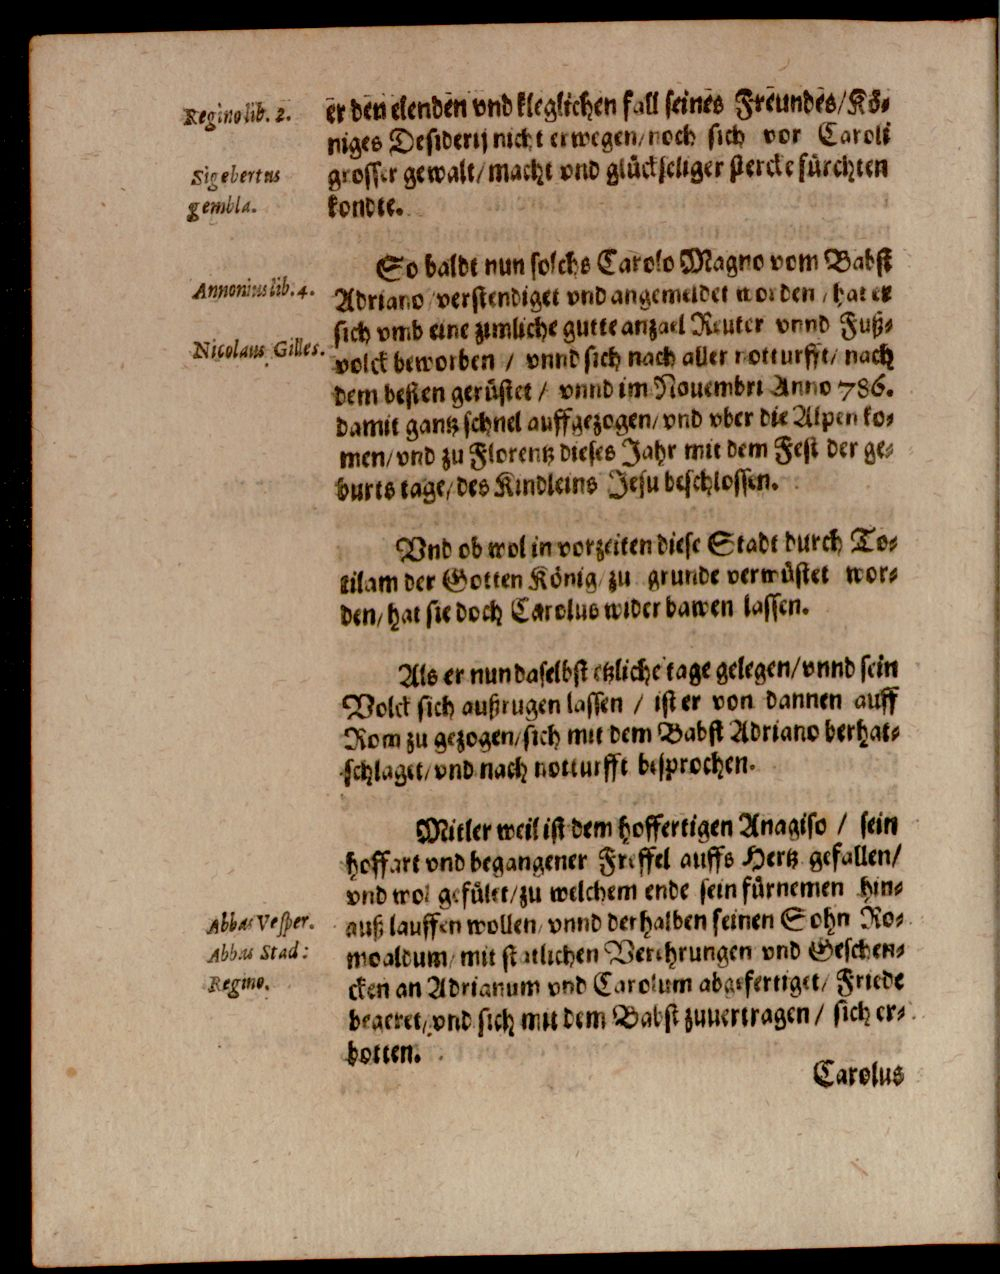 Regino lib. 2.
er den elenden vnd kleglichen fall seines Freundes/Kö-
niges Desiderij nicht erwegen/noch sich vor Caroli
Sigebertus
grosser gewalt/macht vnd glückseliger stercke fürchten
gembla.
kondte.
So baldt nun solchs Carolo Magno vom Babst
Annonius lib. 4.
Adriano verstendiget vnd angemeldet worden/hat er
sich vmb eine zimliche gutte anzael Reuter vnnd Fuß-
Nicolaus Gilles.
volck beworben / vnnd sich nach aller notturfft/ nach
dem besten gerüstet / vnnd im Nouembri Anno 786.
damit gantz schnel auffgezogen/vnd vber die Alpen ko-
men/vnd zu Florentz dieses Jahr mit dem Fest der ge-
burts tage/des Kindleins Jesu beschlossen.
Vnd ob wol in vorzeiten diese Stadt durch To-
tilam der Gotten König/zu grunde verwüstet wor-
den/hat sie doch Carolus wider bawen lassen.
Als er nun daselbst etzliche tage gelegen/vnnd sein
Volck sich außrugen lassen / ist er von dannen auff
Rom zu gezogen/sich mit dem Babst Adriano berhat-
schlaget/vnd nach notturfft besprochen.
Mitler weil ist dem hoffertigen Anagiso / sein
hoffart vnd begangener Freffel auffs Hertz gefallen/
vnd wol gefület/zu welchem ende sein fürnemen hin-
Abbas Vesper.
auß lauffen wollen/vnnd derhalben seinen Sohn Ro-
Abbas Stad:
moaldum/mit statlichen Verehrungen vnd Geschen-
Regino.
cken an Adrianum vnd Carolum abgefertiget/Friede
begeret/vnd sich mit dem Babst zuuertragen / sich er-
botten.
Carolus